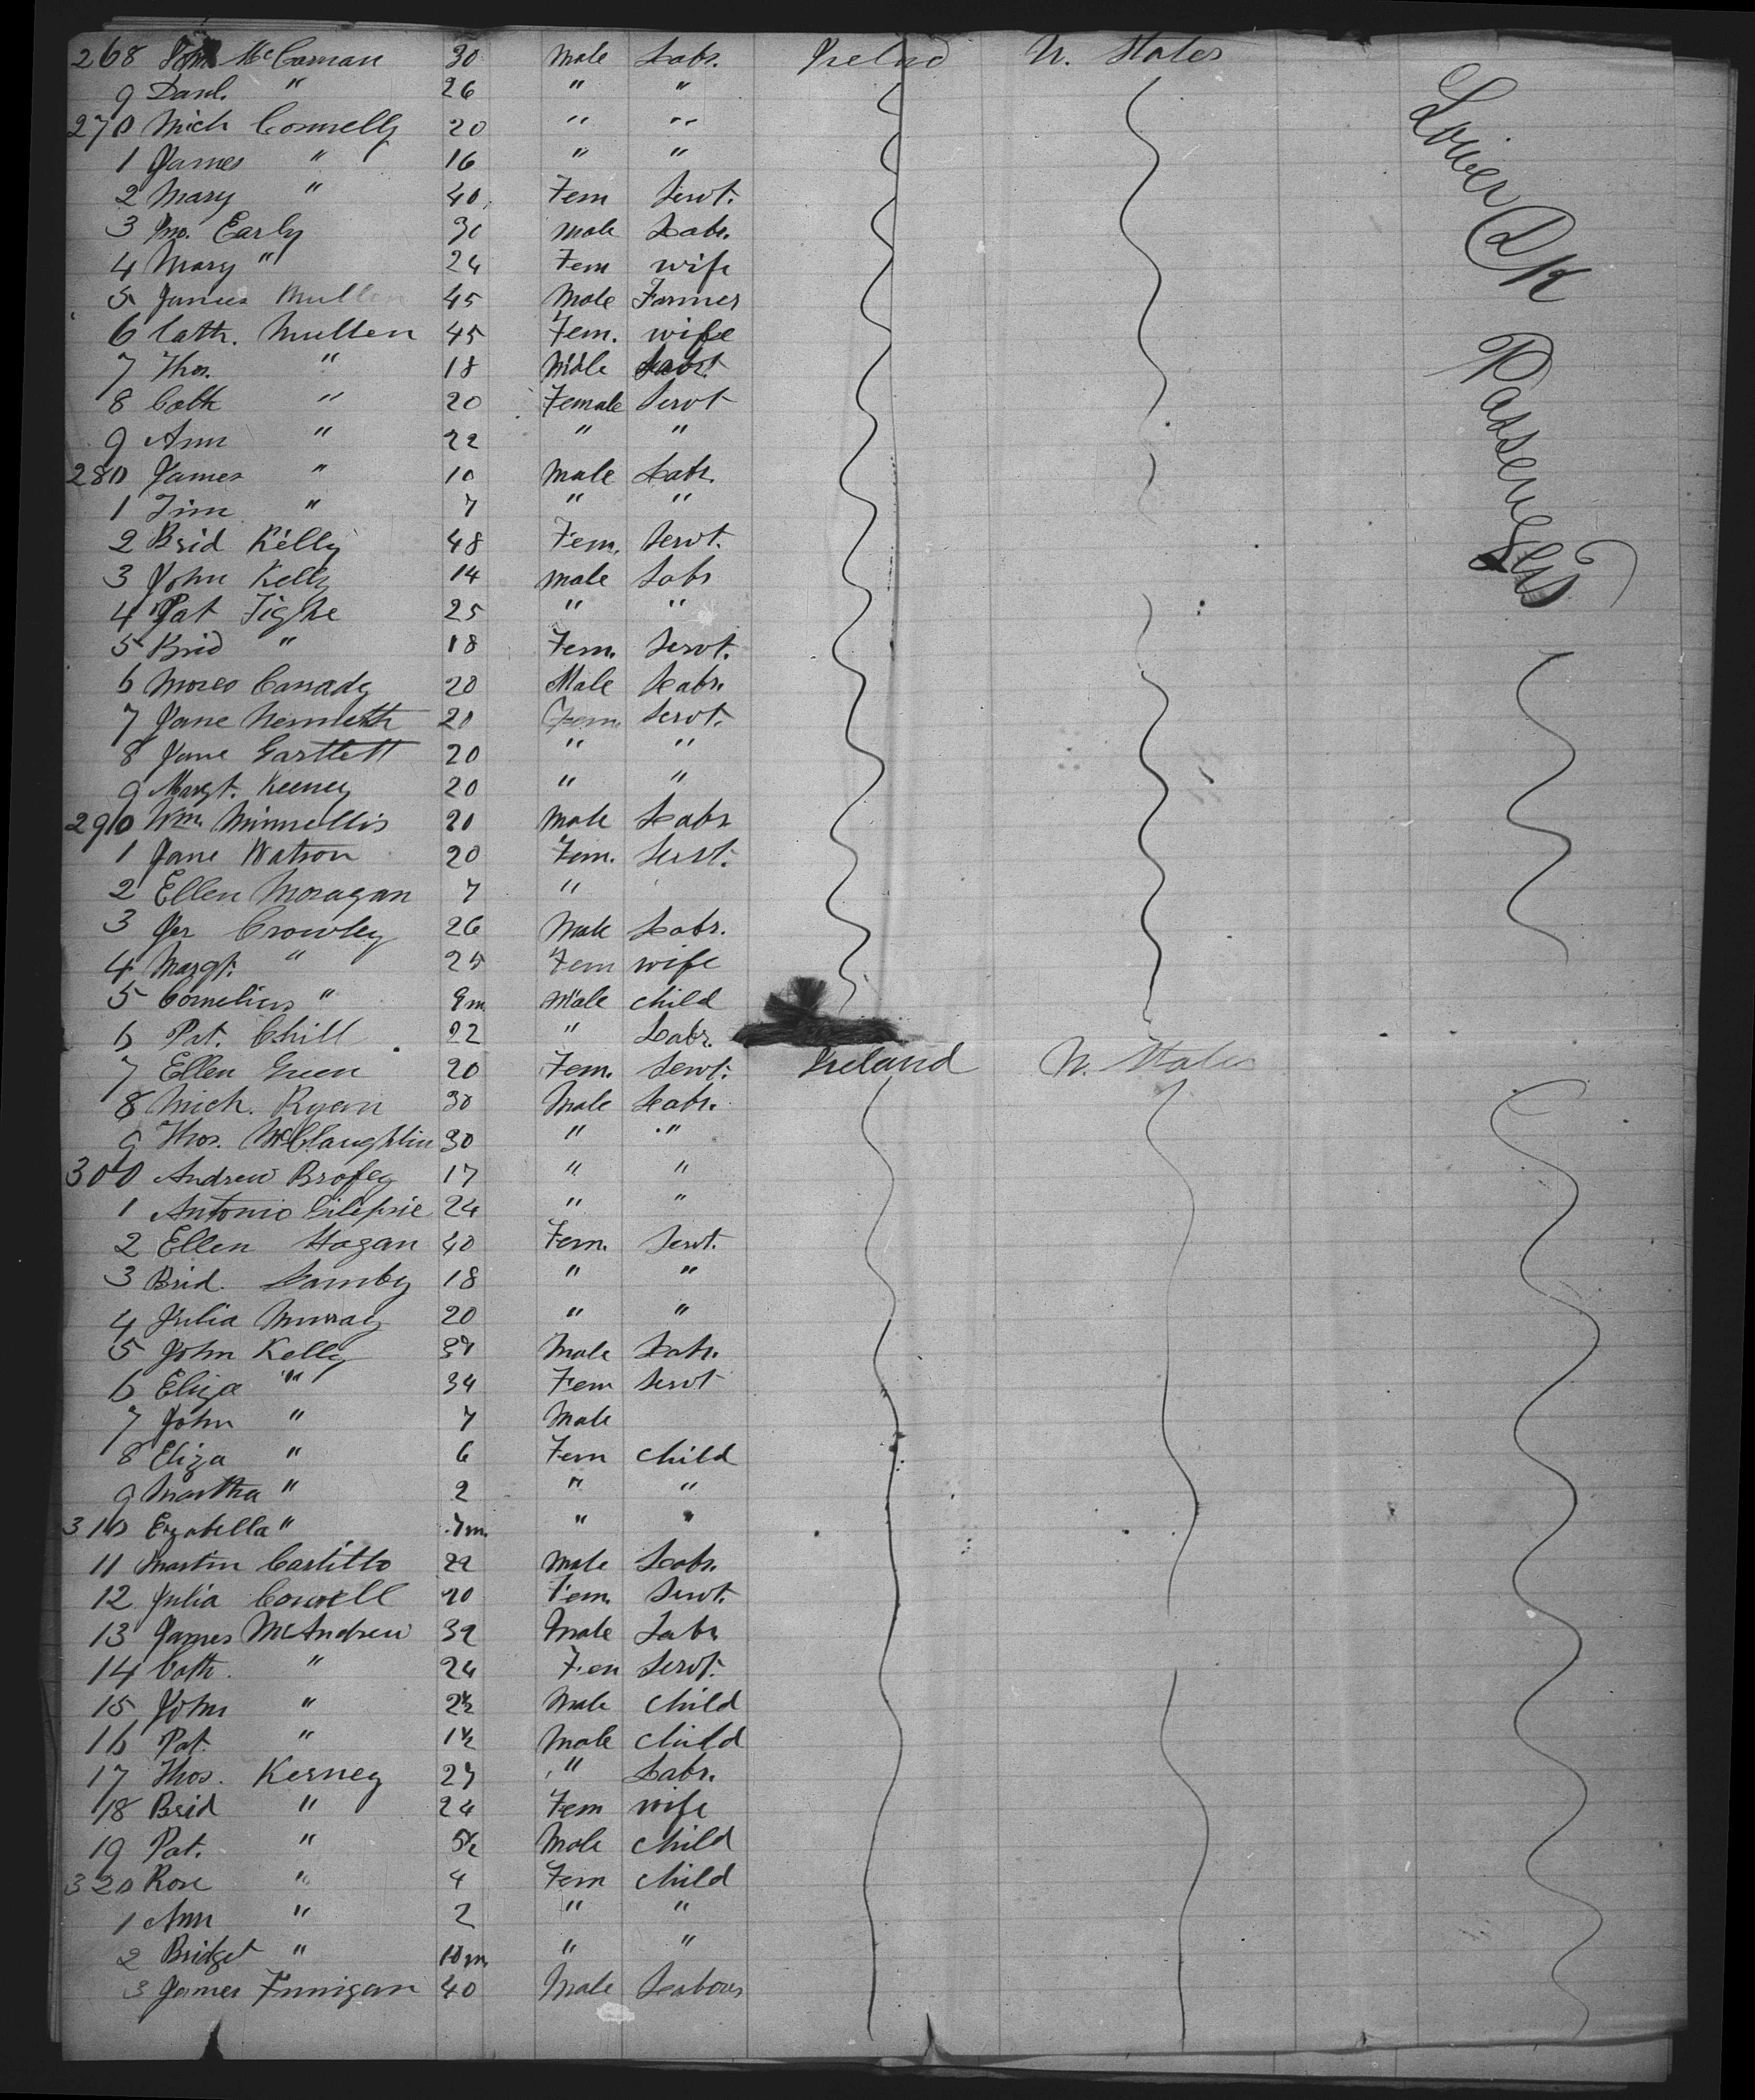 268 John McCaman 30 Male Labr. Ireland U. States
9 Danl. " 26 " "
270 Mich Connelly 20 " "
1 James " 16 " "
2 Mary " 40 Fem Servt.
3 Jno. Early 30 Male Labr.
4 Mary " 24 Fem wife
5 James Mullen 45 Male Farmer
6 Cath. Mullen 45 Fem. wife
7 Thos. " 18 Male Labr.
8 Cath " 20 Female Servt
9 Ann " 22 " "
280 James " 10 Male Labr.
1 Tim " 7 " "
2 Brid Kelly 48 Fem. Servt.
3 John Kelly 14 Male Labr
4 Pat Tighe 25 " "
5 Brid " 18 Fem. Servt.
6 Canady 20 Male Labr.
7 Jane 20 Fem. Servt.
8 Jane Gartlett 20 " "
9 Margt. Keeney 20 " "
290 Wm. Minnellis 20 Male Labr
1 Jane Watson 20 Fem. Servt.
2 Ellen Moragan 7 "
3 Jer Crowley 26 Male Labr.
4 Margt. " 25 Fem wife
5 Cornelius " 9m Male child
6 Pat. Chill 22 " Labr.
7 Ellen Green 20 Fem. Servt. Ireland U. States
8 Mich. Ryan 30 Male Labr.
9 Thos. McClaughlin 30 " "
300 Andrew Brofey 17 " "
1 Antonio Gilepsie 24 " "
2 Ellen Hagan 40 Fem. Servt.
3 Brid. Lamby 18 " "
4 Julia Murray 20 " "
5 John Kelly Male Labr.
6 Eliza " 34 Fem Servt
7 John " 7 Male
8 Eliza " 6 Fem child
9 Martha " 2 " "
310 Ezabella " 7m. " "
11 Martin Castillo 22 Male Labr.
12 Julia 20 Fem. Servt.
13 James McAndrew 32 Male Labr
14 Cath. " 24 Fem Servt.
15 John " 2½ Male child
16 Pat. " 1½ Male child
17 Thos. Kerney 27 " Labr.
18 Brid " 24 Fem wife
19 Pat. " 5½ Male child
320 Rose " 4 Fem child
1 Ann " 2 " "
2 Bridget " 10m " "
3 James Finnigan 40 Male Labour
Lower DK Passengers